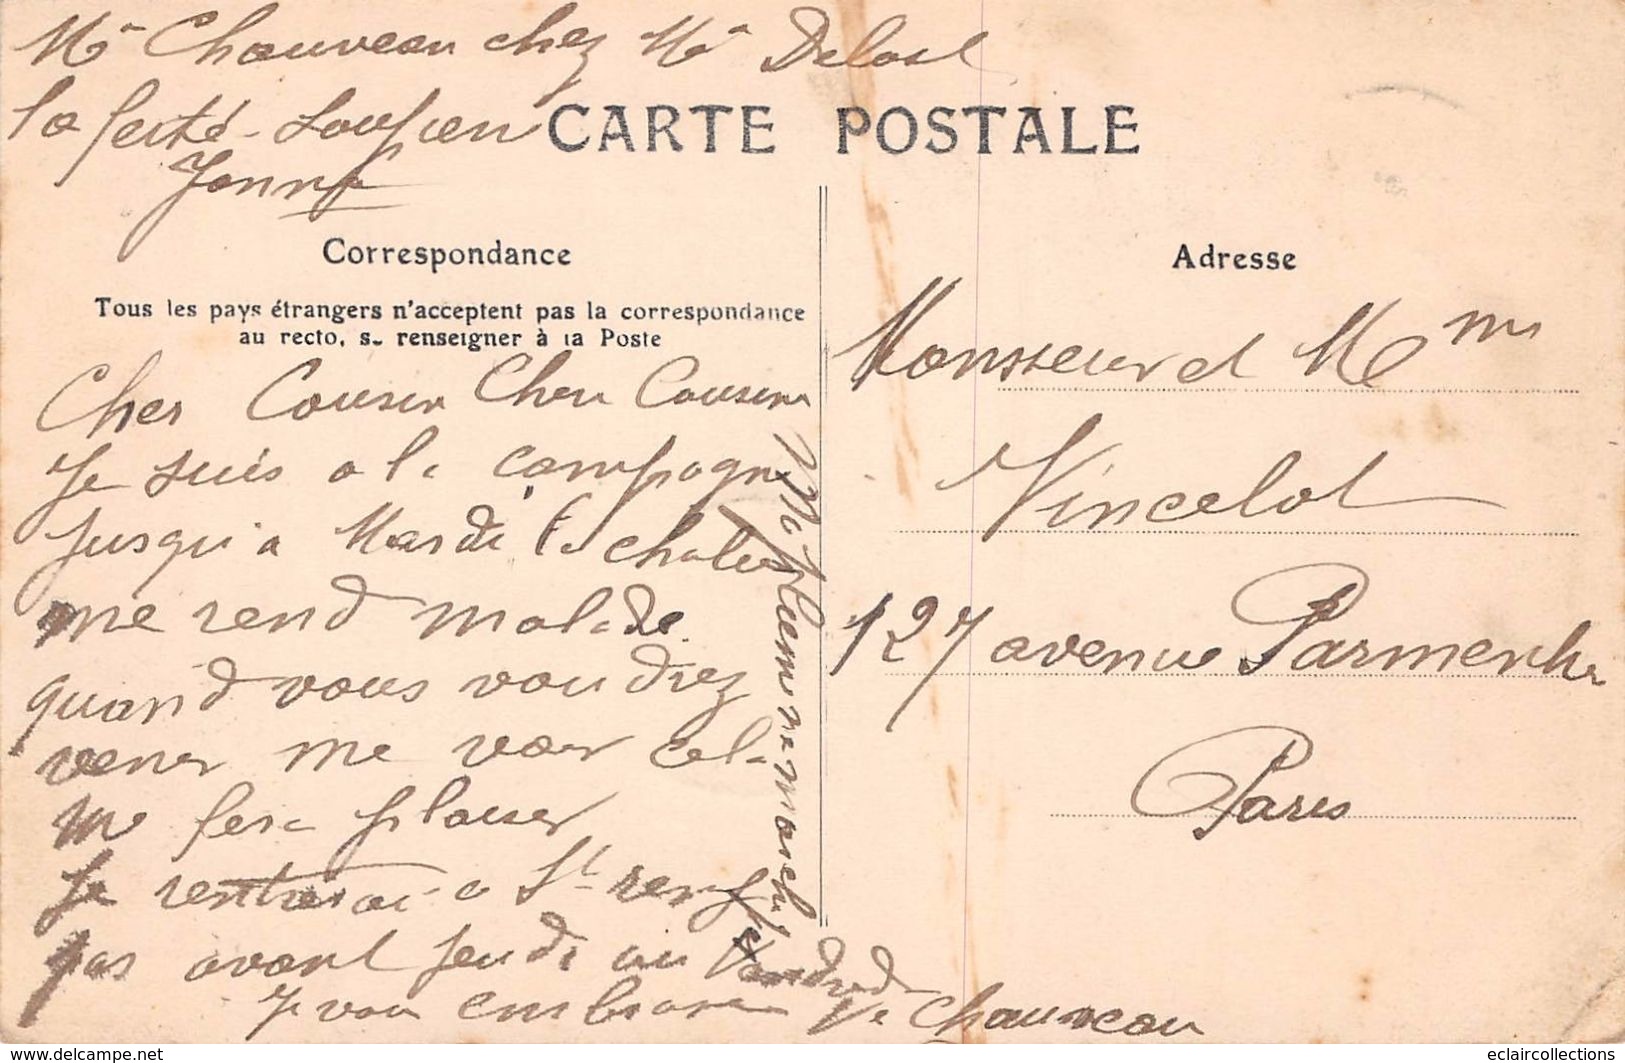 Mr Chauveau chez Mr Delost
la ferté-Loupien
Yonne
CARTE POSTALE
Correspondance
Tous les pays étrangers n'acceptent pas la correspondance
au recto, se renseigner à la Poste
Cher Cousin Cher Cousine
Je suis a la campagne
Jusqu'a Mardi la chaleur
me rend malade
quand vous voudrez
vener me voir cela
me fera plaiser
Je rentrerai a St
pas avant Jeudi ou Vendredi
Je vou embrasse Ve Chauveau
Adresse
Monsieur et Mme
Vincelot
127 avenue Parmentier
Paris
eclaircollections